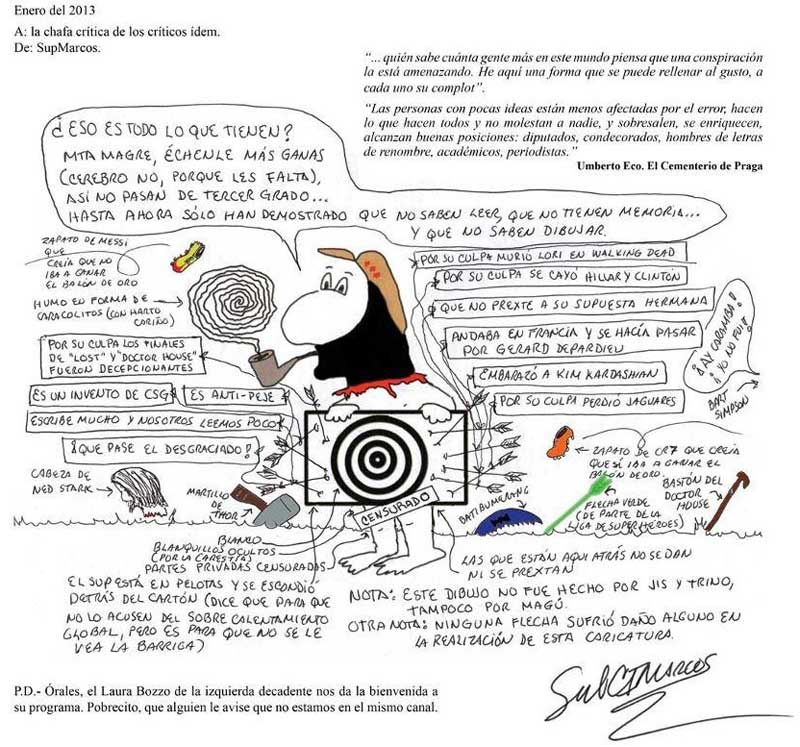 Enero del 2013
A: la chafa crítica de los críticos ídem.
De: SupMarcos.
“... quién sabe cuánta gente más en este mundo piensa que una conspiración
la está amenazando. He aquí una forma que se puede rellenar al gusto, a
cada uno su complot”.
“Las personas con pocas ideas están menos afectadas por el error, hacen
lo que hacen todos y no molestan a nadie, y sobresalen, se enriquecen,
alcanzan buenas posiciones: diputados, condecorados, hombres de letras
de renombre, académicos, periodistas.”
Umberto Eco. El Cementerio de Praga
¿ESO ES TODO LO QUE TIENEN?
MTA MAGRE, ÉCHENLE MÁS GANAS
(CEREBRO NO, PORQUE LES FALTA),
ASÍ NO PASAN DE TERCER GRADO...
HASTA AHORA SÓLO HAN DEMOSTRADO QUE NO SABEN LEER, QUE NO TIENEN MEMORIA...
Y QUE NO SABEN DIBUJAR.
ZAPATO DE MESSI
QUE
CREÍA QUE NO
IBA A GANAR
EL BALÓN DE ORO
HUMO EN FORMA DE
CARACOLITOS (CON HARTO
CORIÑO)
POR SU CULPA LOS FINALES
DE "LOST" Y "DOCTOR HOUSE"
FUERON DECEPCIONANTES
ES UN INVENTO DE CSG
ES ANTI-PEJE
ESCRIBE MUCHO Y NOSOTROS LEEMOS POCO
¡QUE PASE EL DESGRACIADO!
CABEZA DE
NED STARK
MARTILLO
DE
THOR
POR SU CULPA MURIÓ LORI EN WALKING DEAD
POR SU CULPA SE CAYÓ HILLARY CLINTON
QUE NO PREXTE A SU SUPUESTA HERMANA
ANDABA EN FRANCIA Y SE HACÍA PASAR
POR GERARD DEPARDIEU
EMBARAZÓ A KIM KARDASHIAN
POR SU CULPA PERDIÓ JAGUARES
¡AY CARAMBA!
¡YO NO FUI!
BART
SIMPSON
ZAPATO DE CR7 QUE CREÍA
QUE SÍ IBA A GANAR EL
BALÓN DE ORO.
BASTÓN DEL
DOCTOR
HOUSE
FLECHA VERDE
(DE PARTE DE LA
LIGA DE SUPERHÉROES)
BATIBUMERANG
CENSURADO
BLANCO
BLANQUILLOS OCULTOS
(POR LA CARESTÍA)
PARTES PRIVADAS CENSURADAS
LAS QUE ESTÁN AQUI ATRÁS NO SE DAN
NI SE PREXTAN
EL SUP ESTÁ EN PELOTAS Y SE ESCONDIÓ
DETRÁS DEL CARTÓN (DICE QUE PARA QUE
NO LO ACUSEN DEL SOBRE CALENTAMIENTO
GLOBAL, PERO ES PARA QUE NO SE LE
VEA LA BARRIGA)
NOTA: ESTE DIBUJO NO FUE HECHO POR JIS Y TRINO,
TAMPOCO POR MAGÚ.
OTRA NOTA: NINGUNA FLECHA SUFRIÓ DAÑO ALGUNO EN
LA REALIZACIÓN DE ESTA CARICATURA.
SubCIMarcos
P.D.- Órales, el Laura Bozzo de la izquierda decadente nos da la bienvenida a
su programa. Pobrecito, que alguien le avise que no estamos en el mismo canal.